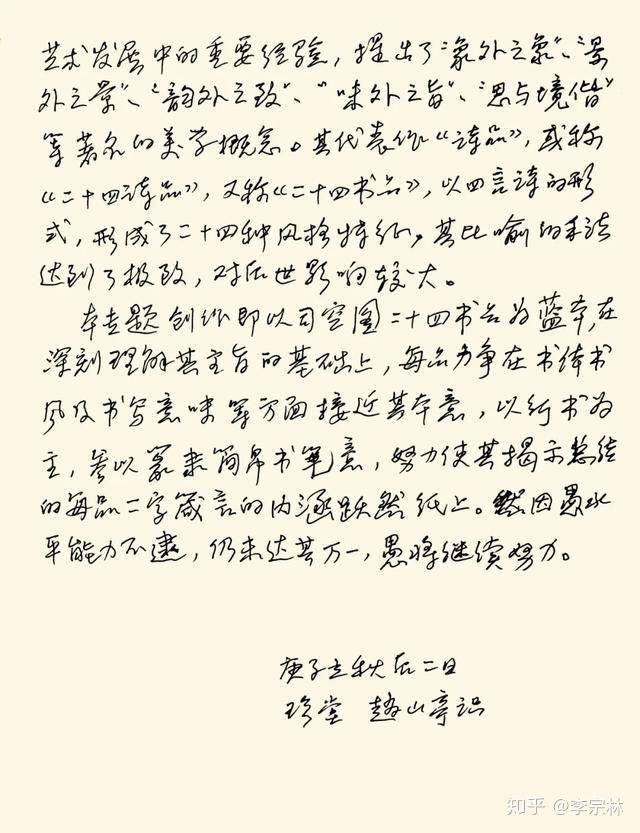 艺术发展中的重要经验，提出了“象外之象”、“景
外之景”、“韵外之致”、“味外之旨”、“思与境偕”
等著名的美学概念。其代表作《诗品》，或称
《二十四诗品》，又称《二十四书品》，以四言诗的形
式，形成了二十四种风格特征，其比喻的手法
达到了极致，对后世影响较大。
本专题创作即以司空图二十四书品为蓝本，在
深刻理解其主旨的基础上，每品力争在书体书
风及书写意味等方面接近其本意，以行书为
主，参以篆隶简帛书笔意，努力使其揭示总结
的每品二字箴言的内涵跃然纸上。然因愚水
平能力不逮，仍未达其万一，愚将继续努力。
庚子立秋后二日
珍堂 赵山亭识
知乎 @李宗林